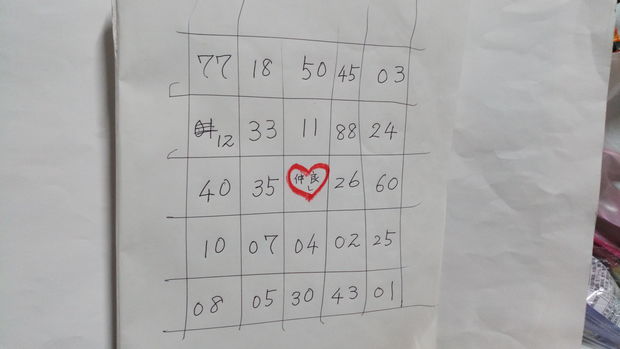 77 18 50 45 03
12 33 11 88 24
40 35 仲良し 26 60
10 07 04 02 25
08 05 30 43 01